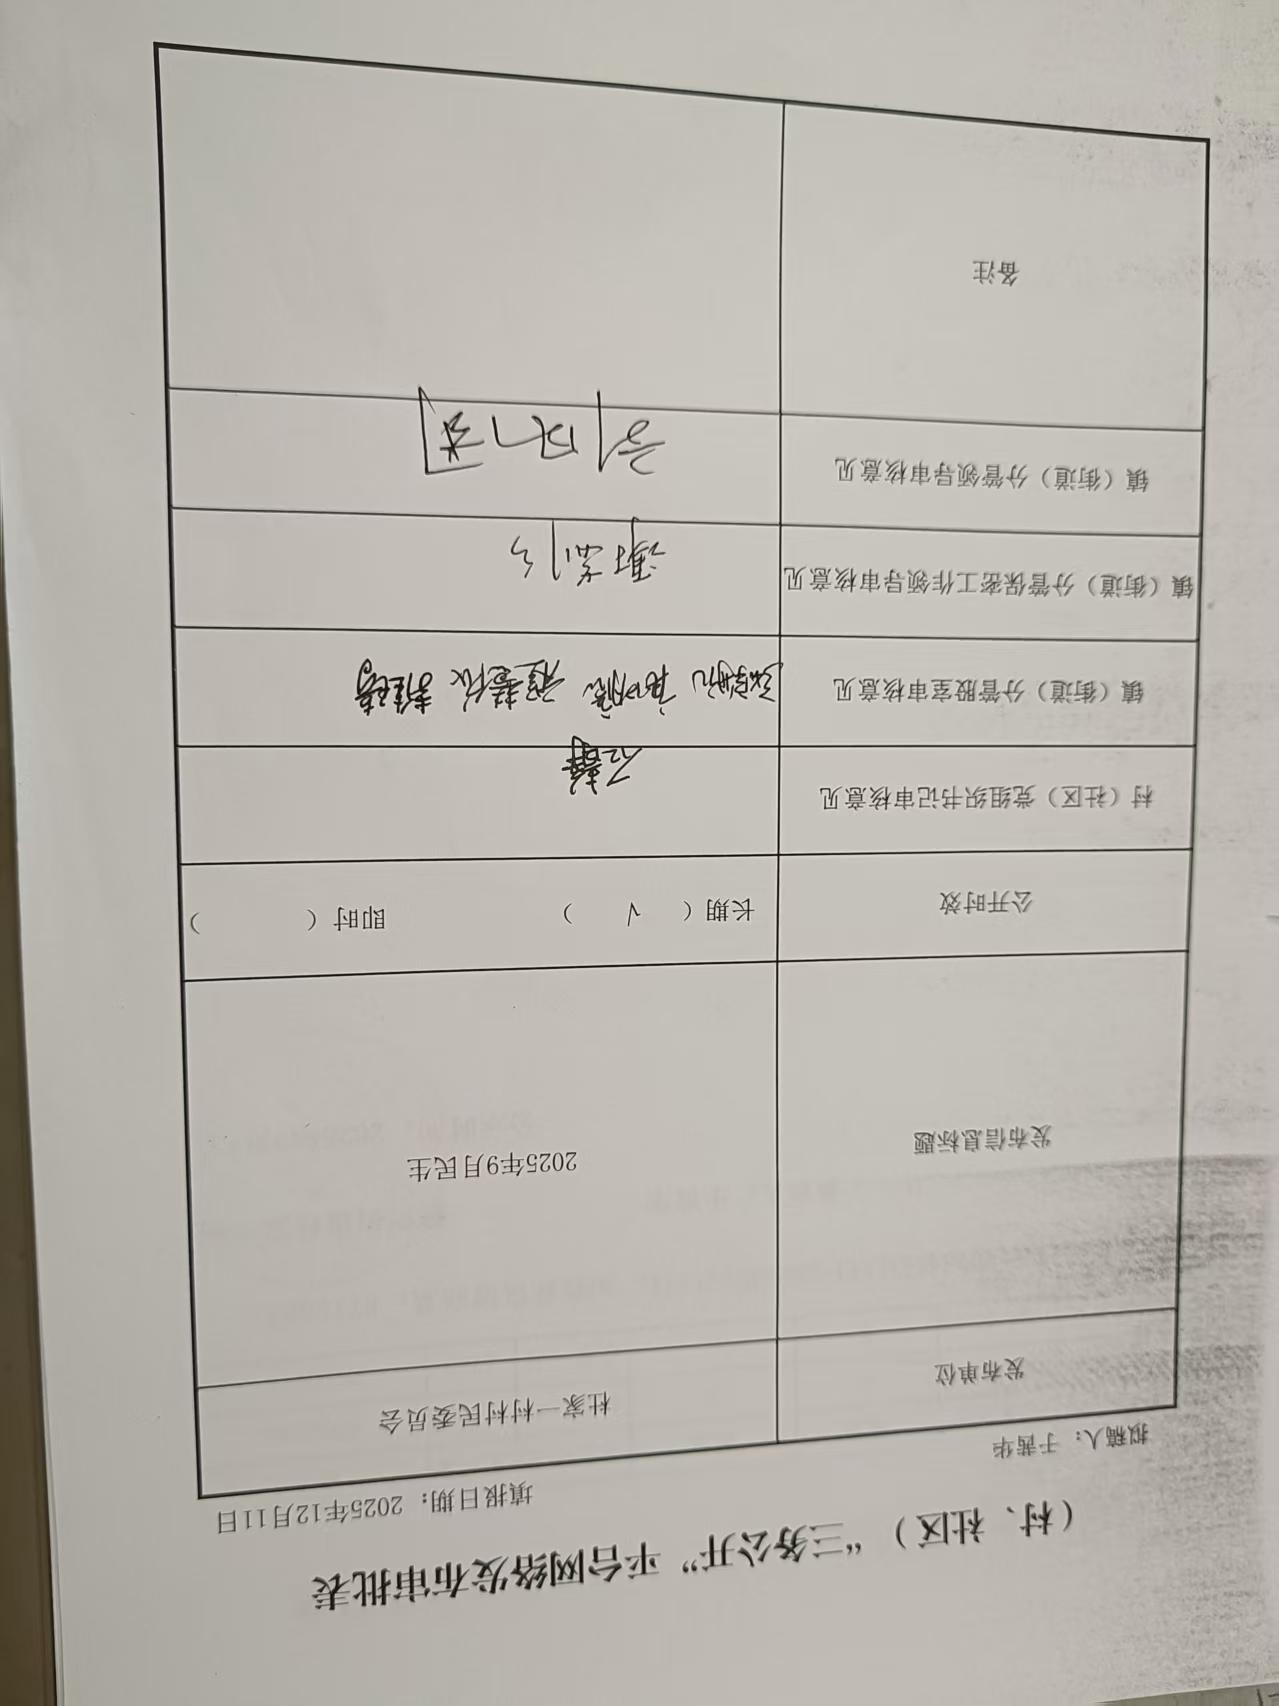 （村、社区）“三务公开”平台网络发布审批表
拟稿人：于茜华 填报日期：2025年12月11日
发布单位 杜家一村村民委员会
发布信息标题 2025年9月民生
公开时效 长期（ √ ） 即时（ ）
村（社区）党组织书记审核意见
镇（街道）分管股室审核意见
镇（街道）分管保密工作领导审核意见
镇（街道）分管领导审核意见
备注